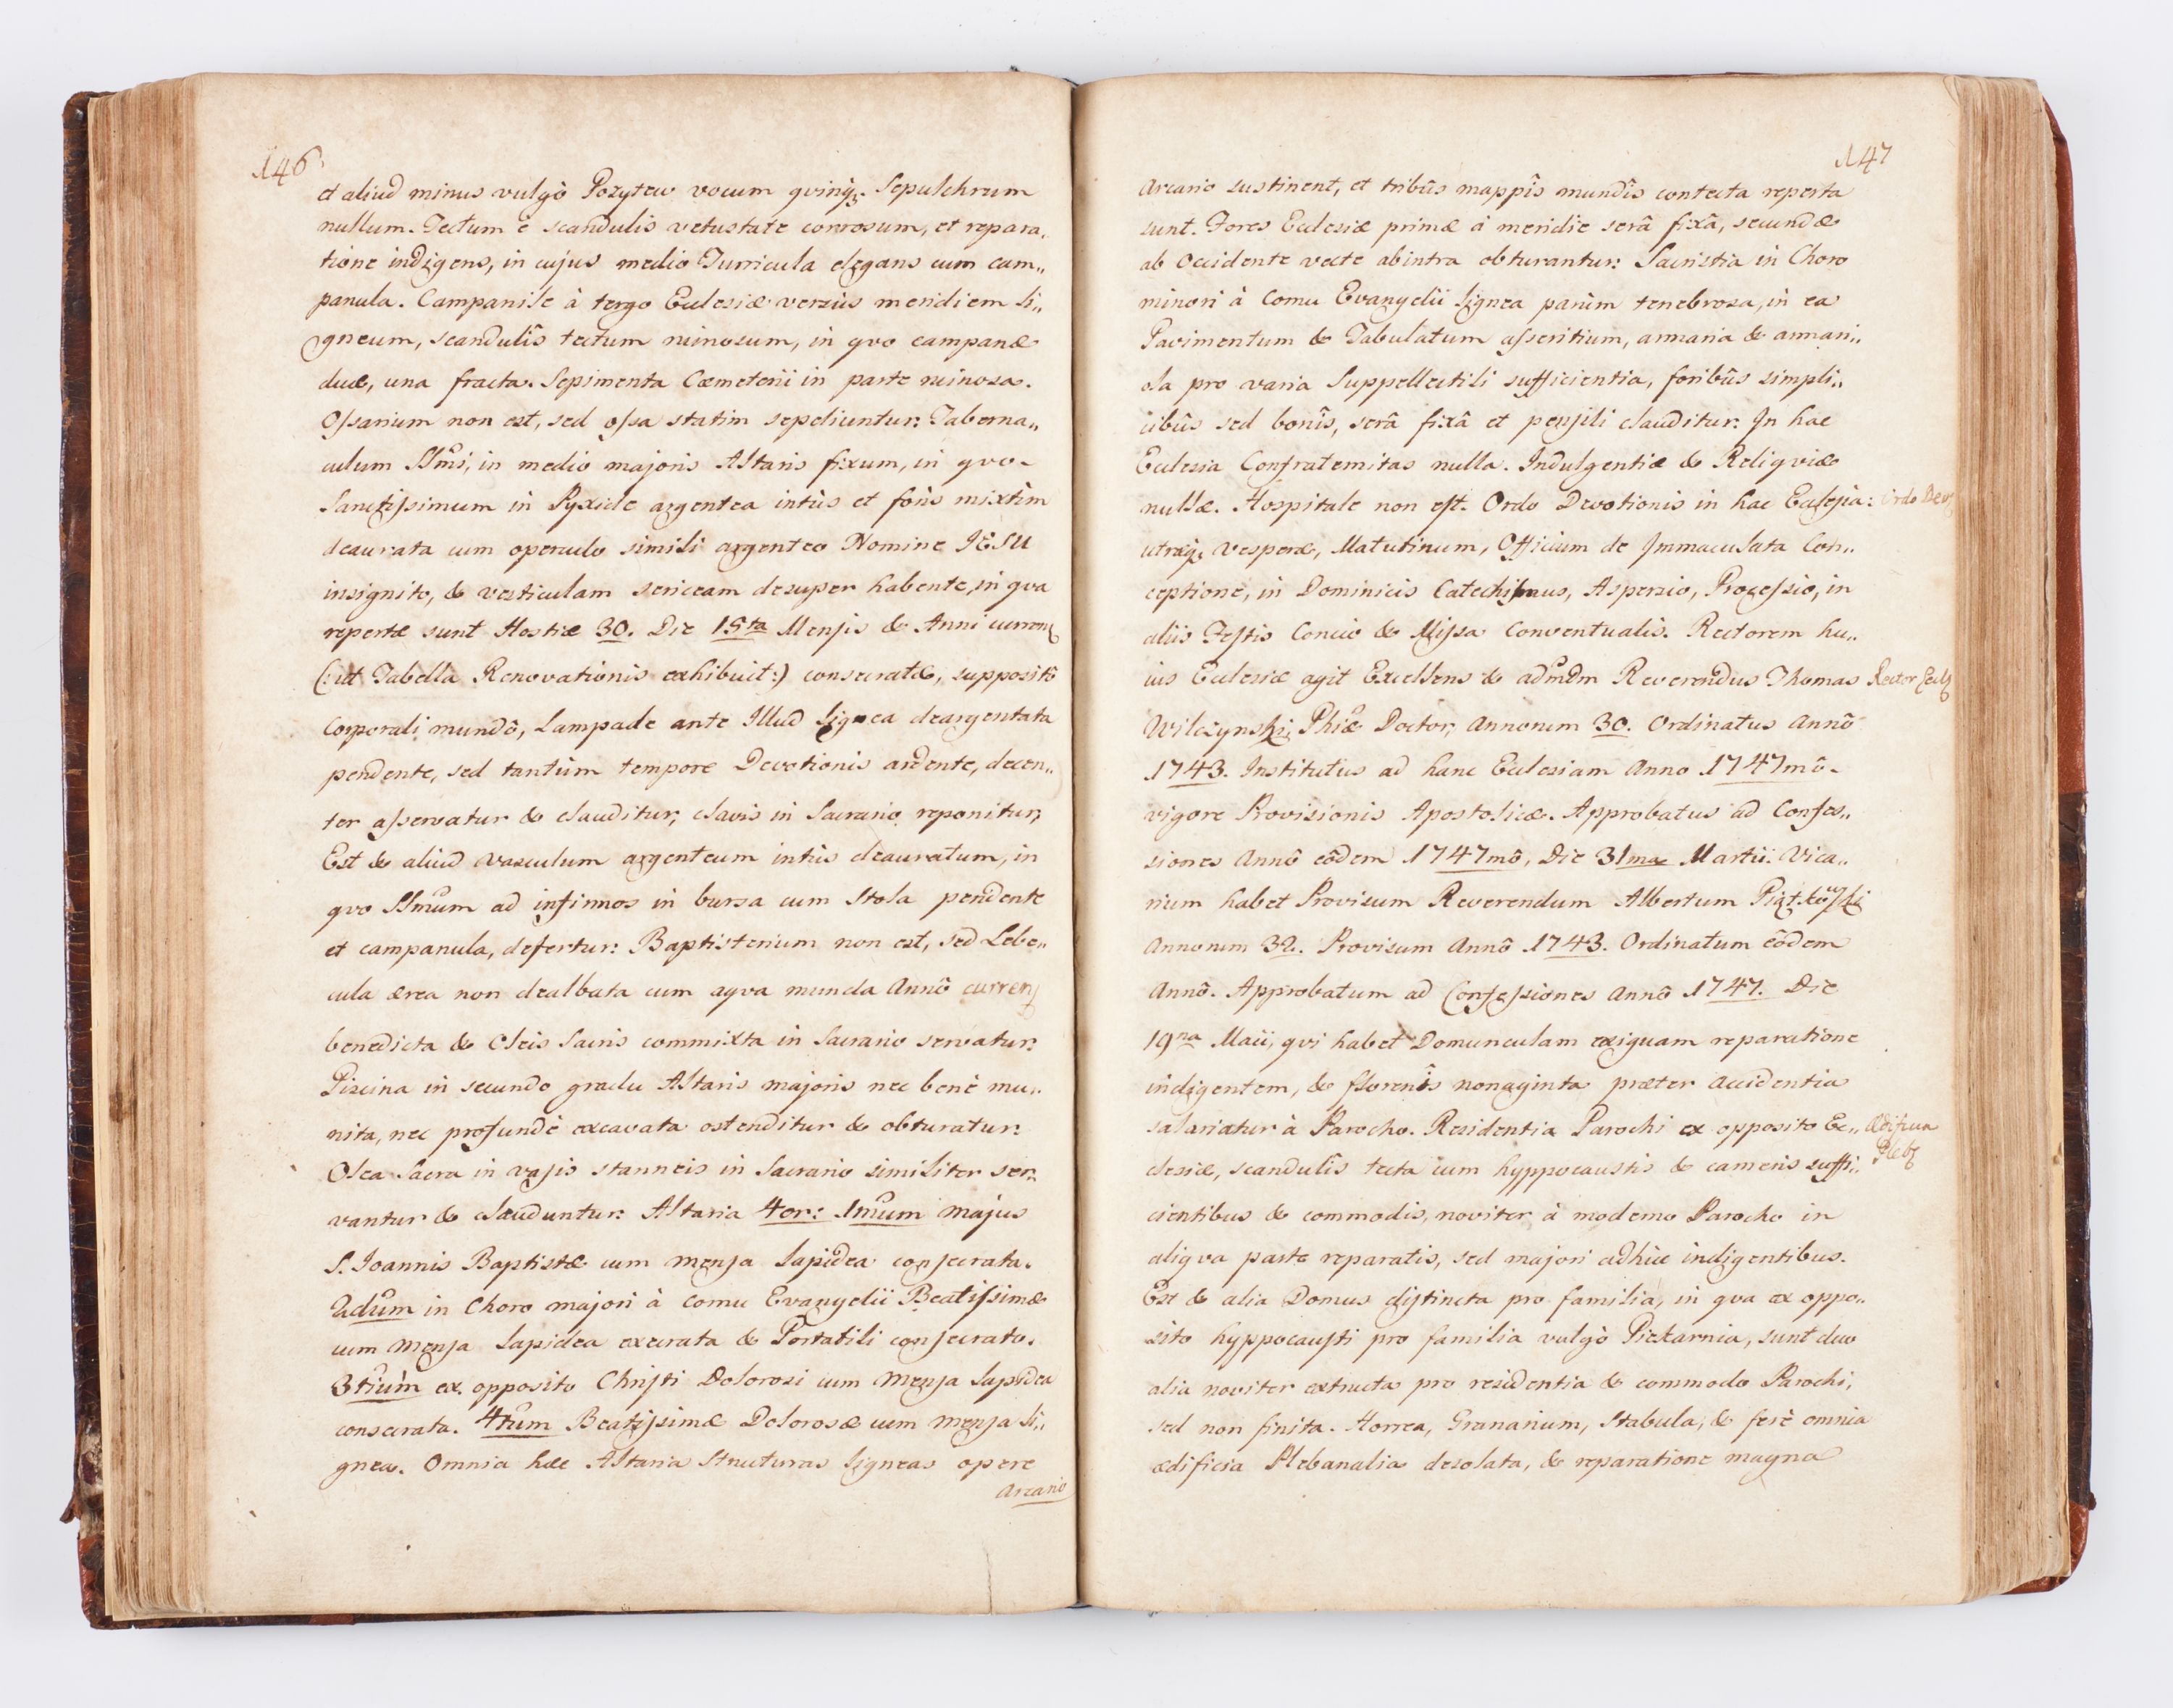 146
et aliud minus vulgò Pozytew vocum qvinq₃. Sepulchrum
nullum. Tectum è scandulis vetustate corrosum, et repara„
tione indigens, in cujus medio Turricula elegans cum cam„
panula. Campanile à tergo Ecclesiæ versùs meridiem li„
gneum, scandulîs tectum ruinosum, in qvo campanæ
duæ, una fracta. Sepimenta Cæmeterii in parte ruinosa.
Ossarium non est, sed ossa statim sepeliuntur: Taberna„
culum SSmi, in medio majoris Altaris fixum, in qvo
Sanctissimum in Pyxide argentea intùs et foris mixtim
deaurata cum operculo simili argenteo Nomine IESU
insignito, & vesticulam sericeam desuper habente, in qva
repertæ sunt Hostiæ 30. Die 15ta Mensis & Anni curren
(: ut Tabella Renovationis exhibuit :) consecratæ, suppositô
Corporali mundô, Lampade ante Illud lignea deargentata
pendente, sed tantùm tempore Devotionis ardente, decen„
ter asservatur & clauditur, clavis in Sacrario reponitur,
Est & aliud vasculum argenteum intùs deauratum, in
qvo SSmum ad infirmos in bursa cum Stola pendente
et campanula, defertur: Baptisterium non est, sed Lebe„
cula ærea non dealbata cum aqva munda Annô curren
benedicta & Oleis Sacris commixta in Sacrario servatur:
Piscina in secundo gradu Altaris majoris nec benè mu„
nita, nec profundè excavata ostenditur & obturatur:
Olea Sacra in vasis stanneis in Sacrario similiter ser„
vantur & clauduntur: Altaria 4or: 1mum majus
S. Ioannis Baptistæ cum mensa lapidea consecrata.
2dum in Choro majori à cornu Evangelii Beatissimæ
cum mensa lapidea execrata & Portatili consecrato.
3tium ex opposito Christi Dolorosi cum mensa lapidea
consecrata. 4tum Beatissimæ Dolorosæ cum mensa li„
gnea. Omnia hæc Altaria Structuras ligneas opere
Arcario
147
Arcario sustinent, et tribûs mappîs mundîs contecta reperta
sunt. Fores Ecclesiæ primæ à meridie serâ fixâ, secundæ
ab Occidente vecte abintra obturantur: Sacristia in Choro
minori à Cornu Evangelii lignea parùm tenebrosa, in ea
Pavimentum & Tabulatum asseritium, armaria & armari„
ola pro varia Suppellectili sufficientia, foribûs simpli„
cibûs sed bonîs, serâ fixâ et pensili clauditur: In hac
Ecclesia Confraternitas nulla. Indulgentiæ & Reliqviæ
nullæ. Hospitale non est. Ordo Devotionis in hac Ecclesia: Ordo Dev
utræq₃ Vesperæ, Matutinum, Officium de Immaculata Con„
ceptione, in Dominicis Catechismus, Aspersio, Processio, in
aliis Festis Concio & Missa Conventualis. Rectorem hu„
ius Ecclesiæ agit Excellens & admdm Reverendus Thomas Rector Eccl
Wilczynski, Phiæ Doctor, Annorum 30. Ordinatus Annô
1743. Institutus ad hanc Ecclesiam Anno 1747mô
vigore Provisionis Apostolicæ. Approbatus ad Confes„
siones Annô eôdem 1747mô, Die 31ma Martii. Vica„
rium habet Provisum Reverendum Albertum Piątkowski
Annorum 32. Provisum Annô 1743. Ordinatum eôdem
Annô. Approbatum ad Confessiones Annô 1747. Die
19na Maii, qvi habet Domunculam exiguam reparatione
indigentem, & florenîs nonaginta præter accidentia
salariatur à Parocho. Residentia Parochi ex opposito Ec„ Ædificia
clesiæ, scandulîs tecta cum hyppocaustis & cameris suffi„ Pleb
cientibus & commodis, noviter à moderno Parocho in
aliqva parte reparatis, sed majori adhùc indigentibus.
Est & alia Domus distincta pro familia, in qva ex oppo„
sito hyppocausti pro familia vulgò Piekarnia, sunt duo
alia noviter extructa pro residentia & commodo Parochi,
sed non finita. Horrea, Granarium, Stabula, & ferè omnia
ædificia Plebanalia desolata, & reparatione magna